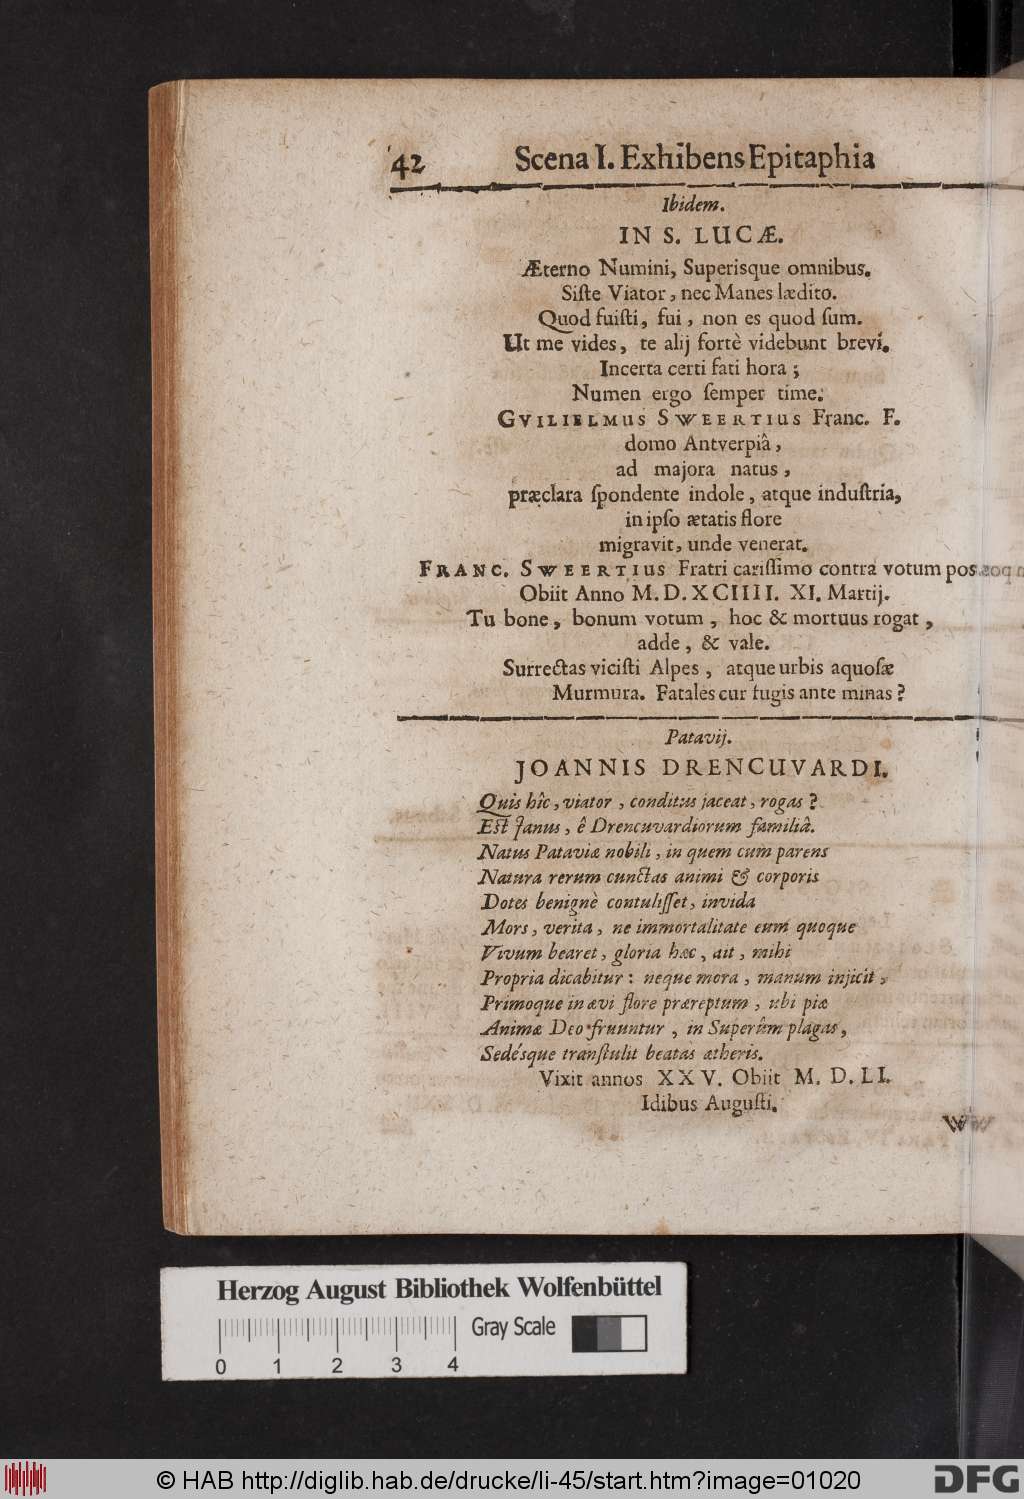 42 Scena I. Exhibens Epitaphia
Ibidem.
IN S. LUCÆ.
Æterno Numini, Superisque omnibus.
Siſte Viator, nec Manes lædito.
Quod fuiſti, fui, non es quod ſum.
Ut me vides, te alij fortè videbunt brevi.
Incerta certi fati hora;
Numen ergo ſemper time.
GVILIELMUS SWEERTIUS Franc. F.
domo Antverpiâ,
ad majora natus,
præclara ſpondente indole, atque induſtria,
in ipſo ætatis flore
migravit, unde venerat.
FRANC. SWEERTIUS Fratri cariſſimo contra votum pos.
Obiit Anno M. D. XCIIII. XI. Martij.
Tu bone, bonum votum, hoc & mortuus rogat,
adde, & vale.
Surrectas viciſti Alpes, atque urbis aquoſæ
Murmura. Fatales cur fugis ante minas?
Patavij.
JOANNIS DRENCUVARDI.
Quis hîc, viator, conditus jaceat, rogas?
Eſt Janus, ê Drencuvardiorum familiâ.
Natus Pataviæ nobili, in quem cum parens
Natura rerum cunctas animi & corporis
Dotes benignè contuliſſet, invida
Mors, verita, ne immortalitate eum quoque
Vivum bearet, gloria hæc, ait, mihi
Propria dicabitur: neque mora, manum injicit,
Primoque in ævi flore præreptum, ubi piæ
Animæ Deo fruuntur, in Superûm plagas,
Sedésque tranſtulit beatas ætheris.
Vixit annos XXV. Obiit M. D. LI.
Idibus Auguſti.
Herzog August Bibliothek Wolfenbüttel
Gray Scale
0 1 2 3 4
© HAB http://diglib.hab.de/drucke/li-45/start.htm?image=01020
DFG